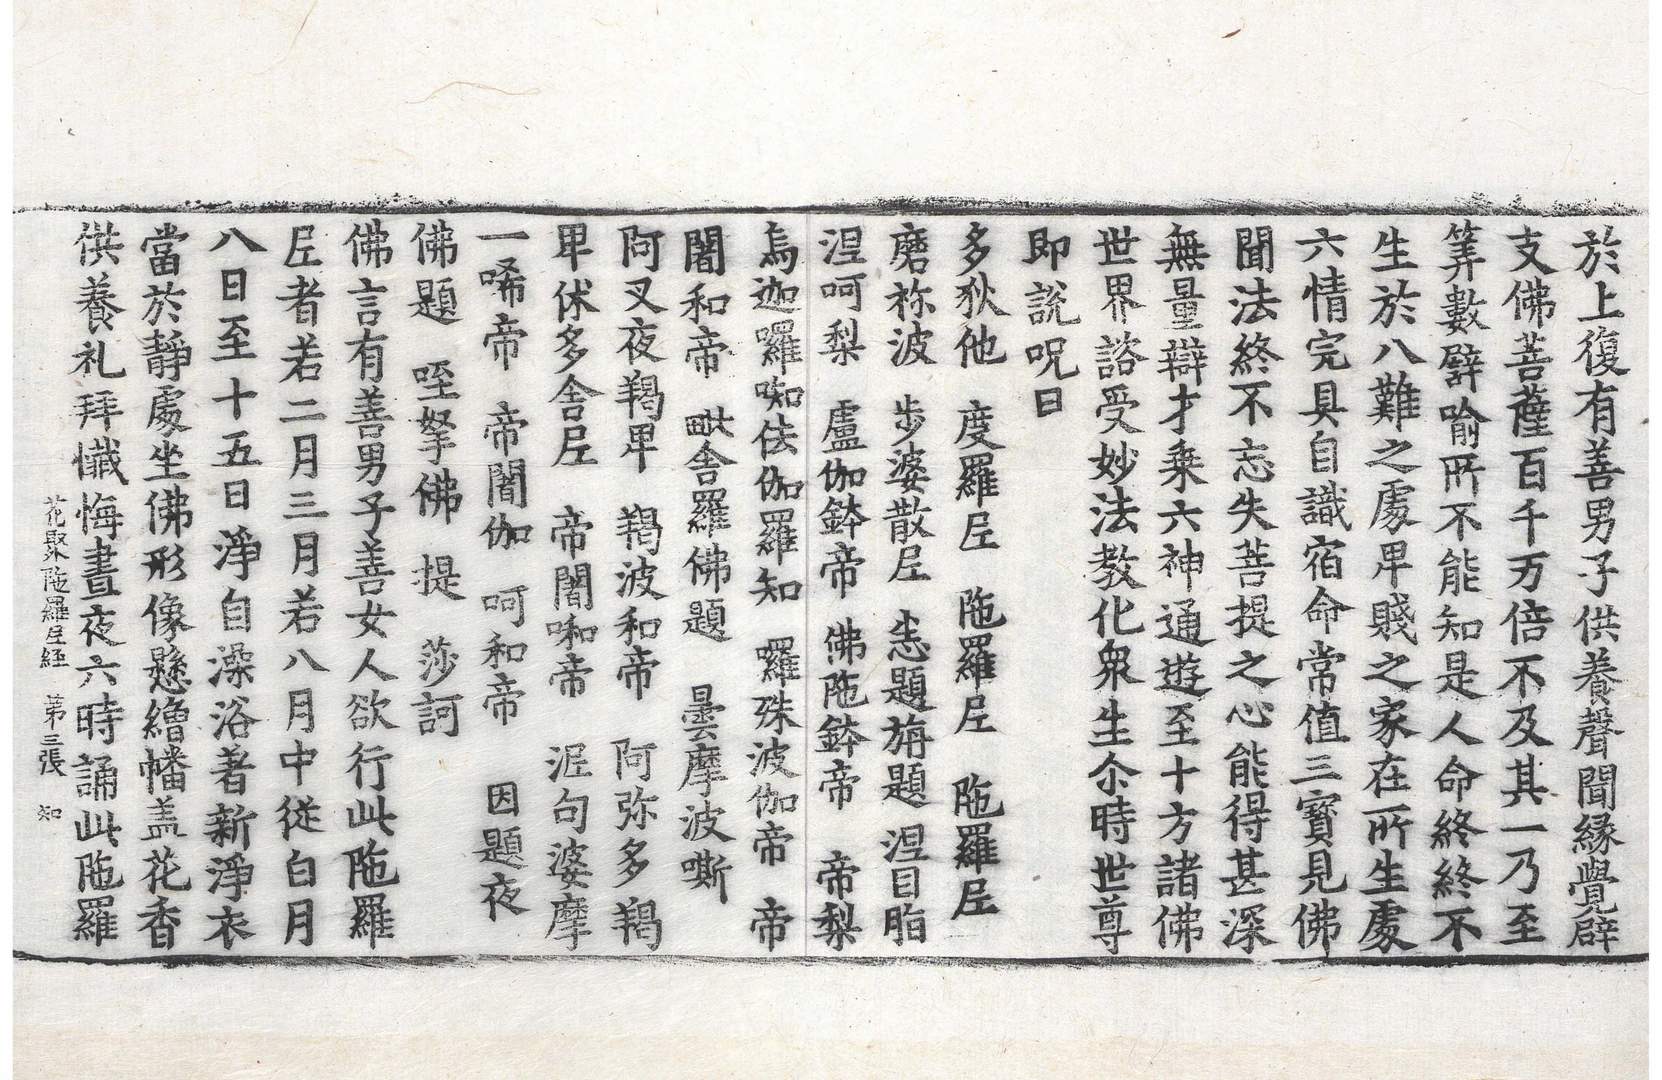 於上復有善男子供養聲聞縁覺辟
支佛菩薩百千万倍不及其一乃至
筭數譬喻所不能知是人命終終不
生於八難之處卑賤之家在所生處
六情完具自識宿命常值三寶見佛
聞法終不忘失菩提之心能得甚深
無量辯才乗六神通遊至十方諸佛
世界諮受妙法教化衆生尒時世尊
即說呪曰
多狄他　度羅𡰱　陁羅𡰱　陁羅𡰱
磨祢波　步婆散𡰱　題旃題　涅目脂
涅呵梨　盧伽鉢帝　佛陁鉢帝　帝梨
烏迦囉㗌佉伽羅知　囉殊波伽帝　帝
闍和帝　舍羅佛題　曇摩波嘶
阿叉夜羯卑　羯波和帝　阿弥多羯
卑休多舍𡰱　帝闍啝帝　泥句婆摩
一唏帝　帝闍伽　呵和帝　因題夜
佛題　咥拏佛　提　莎訶
佛言有善男子善女人欲行此陁羅
𡰱者若二月三月若八月中從白月
八日至十五日淨自澡浴著新淨衣
當於靜處坐佛形像懸繒幡盖花香
供養礼拜懺悔晝夜六時誦此陁羅
花聚陁羅𡰱經　第三張　知